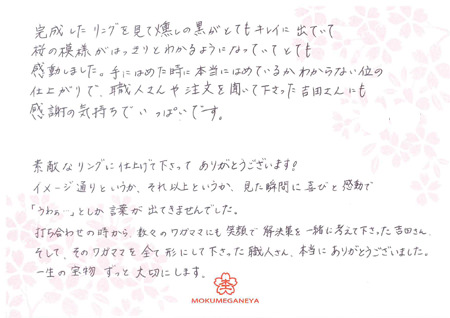 完成したリングを見て燻しの黒がとてもキレイに出ていて
桜の模様がはっきりとわかるようになっていてとても
感動しました。手にはめた時に本当にはめているかわからない位の
仕上がりで、職人さんや注文を聞いて下さった吉田さんにも
感謝の気持ちでいっぱいです。
素敵なリングに仕上げて下さって ありがとうございます!
イメージ通りというか、それ以上というか、見た瞬間に喜びと感動で
「うわぁ…」としか言葉が出てきませんでした。
打ち合わせの時から、数々のワガママにも笑顔で解決策を一緒に考えて下さった吉田さん、
そして、そのワガママを全て形にして下さった職人さん、本当にありがとうございました。
一生の宝物 ずっと大切にします。
MOKUMEGANEYA